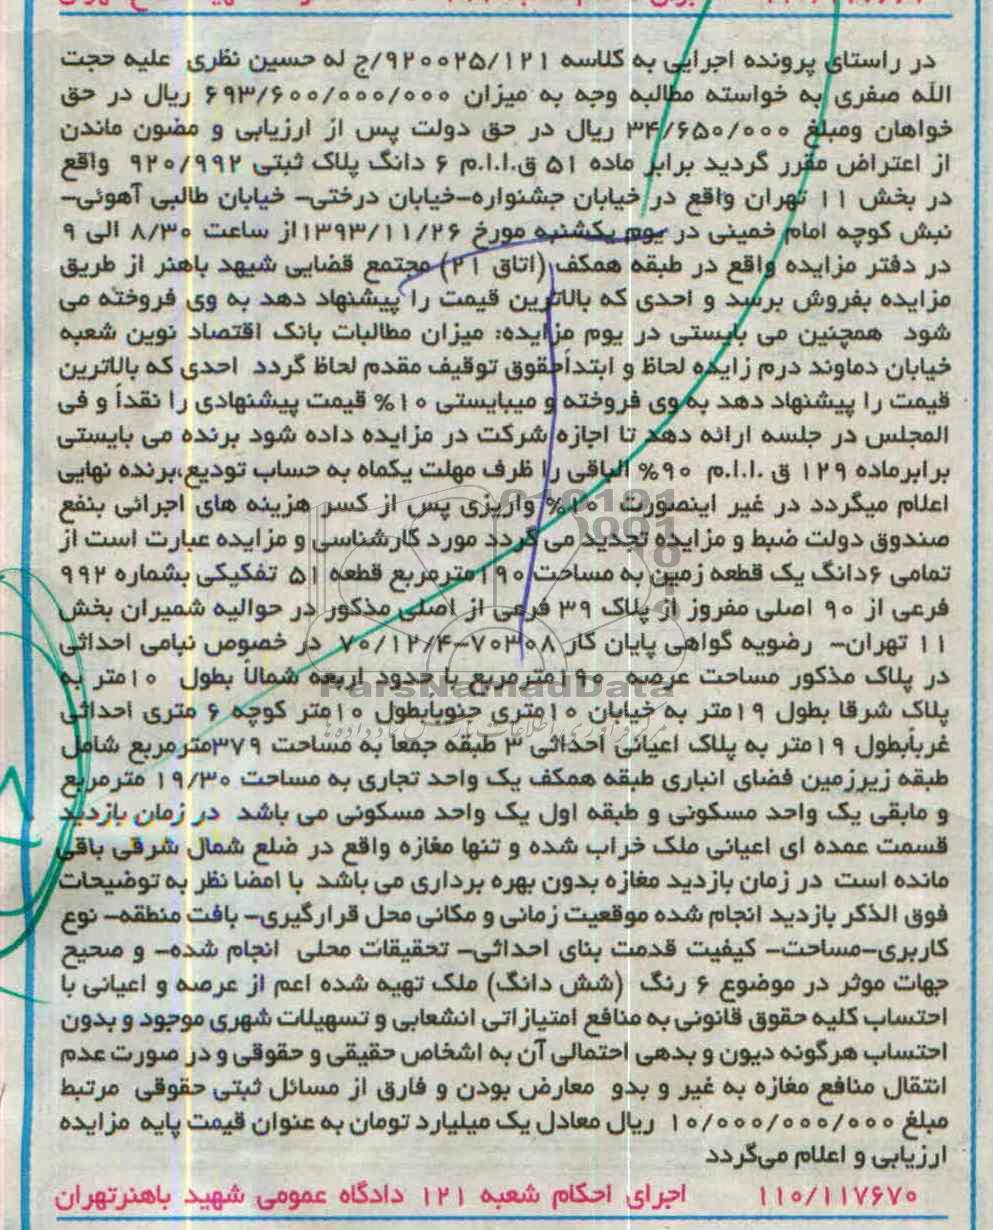 در راستای پرونده اجرایی به کلاسه ۹۲۰۰۲۵/۱۲۱/ج له حسین نظری علیه حجت
الله صفری به خواسته مطالبه وجه به میزان ۶۹۳/۶۰۰/۰۰۰/۰۰۰ ریال در حق
خواهان ومبلغ ۳۴/۶۵۰/۰۰۰ ریال در حق دولت پس از ارزیابی و مضون ماندن
از اعتراض مقرر گردید برابر ماده ۵۱ ق.ا.ا.م ۶ دانگ پلاک ثبتی ۹۲۰/۹۹۲ واقع
در بخش ۱۱ تهران واقع در خیابان جشنواره-خیابان درختی- خیابان طالبی آهوئی-
نبش کوچه امام خمینی در یوم یکشنبه مورخ ۱۳۹۳/۱۱/۲۶از ساعت ۸/۳۰ الی ۹
در دفتر مزایده واقع در طبقه همکف (اتاق ۲۱) مجتمع قضایی شیهد باهنر از طریق
مزایده بفروش برسد و احدی که بالاترین قیمت را پیشنهاد دهد به وی فروخته می
شود همچنین می بایستی در یوم مزایده: میزان مطالبات بانک اقتصاد نوین شعبه
خیابان دماوند درم زایده لحاظ و ابتدأحقوق توقیف مقدم لحاظ گردد احدی که بالاترین
قیمت را پیشنهاد دهد به وی فروخته و میبایستی ۱۰% قیمت پیشنهادی را نقدأ و فی
المجلس در جلسه ارائه دهد تا اجازه شرکت در مزایده داده شود برنده می بایستی
برابرماده ۱۲۹ ق .ا.ا.م ۹۰% الباقی را ظرف مهلت یکماه به حساب تودیع،برنده نهایی
اعلام میگردد در غیر اینصورت ۱۰% واریزی پس از کسر هزینه های اجرائی بنفع
صندوق دولت ضبط و مزایده تجدید می گردد مورد کارشناسی و مزایده عبارت است از
تمامی ۶دانگ یک قطعه زمین به مساحت ۱۹۰مترمربع قطعه ۵۱ تفکیکی بشماره ۹۹۲
فرعی از ۹۰ اصلی مفروز از پلاک ۳۹ فرعی از اصلی مذکور در حوالیه شمیران بخش
۱۱ تهران- رضویه گواهی پایان کار ۷۰۳۰۸-۷۰/۱۲/۴ در خصوص نبامی احداثی
در پلاک مذکور مساحت عرصه ۱۹۰مترمربع با حدود اربعه شمالأ بطول ۱۰متر به
پلاک شرقا بطول ۱۹متر به خیابان ۱۰متری جنوبابطول ۱۰متر کوچه ۶ متری احداثی
غربأبطول ۱۹متر به پلاک اعیانی احداثی ۳ طبقه جمعأ به مساحت ۳۷۹مترمربع شامل
طبقه زیرزمین فضای انباری طبقه همکف یک واحد تجاری به مساحت ۱۹/۳۰ مترمربع
و مابقی یک واحد مسکونی و طبقه اول یک واحد مسکونی می باشد در زمان بازدید
قسمت عمده ای اعیانی ملک خراب شده و تنها مغازه واقع در ضلع شمال شرقی باقی
مانده است در زمان بازدید مغازه بدون بهره برداری می باشد با امضا نظر به توضیحات
فوق الذکر بازدید انجام شده موقعیت زمانی و مکانی محل قرارگیری- بافت منطقه- نوع
کاربری-مساحت- کیفیت قدمت بنای احداثی- تحقیقات محلی انجام شده- و صحیح
جهات موثر در موضوع ۶ رنگ (شش دانگ) ملک تهیه شده اعم از عرصه و اعیانی با
احتساب کلیه حقوق قانونی به منافع امتیازاتی انشعابی و تسهیلات شهری موجود و بدون
احتساب هرگونه دیون و بدهی احتمالی آن به اشخاص حقیقی و حقوقی و در صورت عدم
انتقال منافع مغازه به غیر و بدو معارض بودن و فارق از مسائل ثبتی حقوقی مرتبط
مبلغ ۱۰/۰۰۰/۰۰۰/۰۰۰ ریال معادل یک میلیارد تومان به عنوان قیمت پایه مزایده
ارزیابی و اعلام می‌گردد
۱۱۰/۱۱۷۶۷۰ اجرای احکام شعبه ۱۲۱ دادگاه عمومی شهید باهنرتهران
ParsNamadData